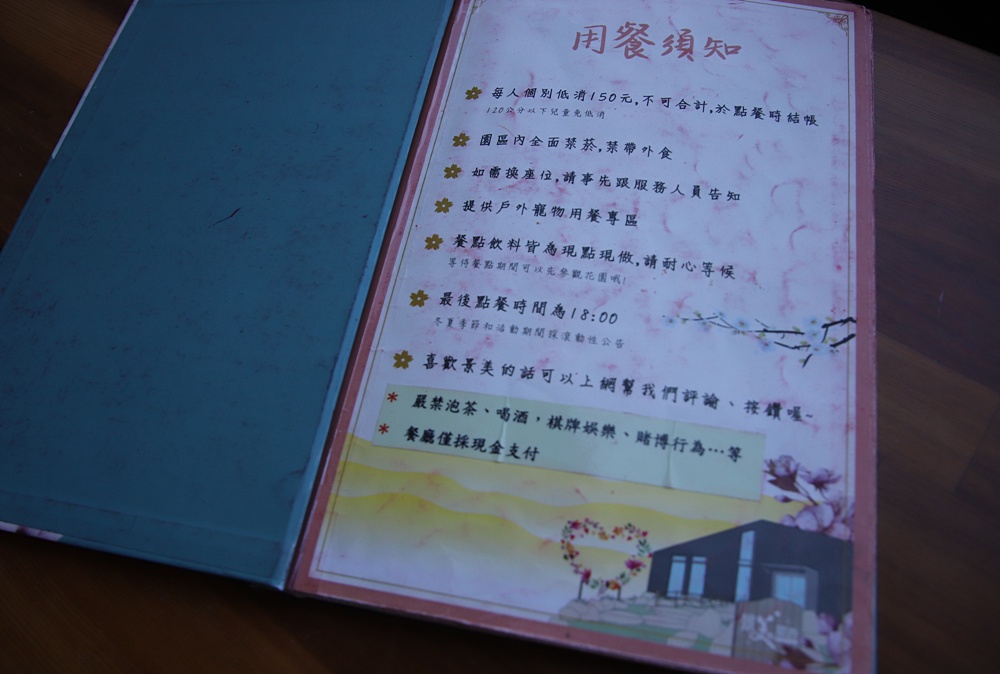 用餐須知
每人個別低消150元,不可合計,於點餐時結帳
120公分以下兒童免低消
園區內全面禁菸,禁帶外食
如需換座位,請事先跟服務人員告知
提供戶外寵物用餐專區
餐點飲料皆為現點現做,請耐心等候
等待餐點期間可以先參觀花園哦!
最後點餐時間為18:00
冬夏季節和活動期間採滾動性公告
喜歡景美的話可以上網幫我們評論、按讚喔~
* 嚴禁泡茶、喝酒,棋牌娛樂、賭博行為…等
* 餐廳僅採現金支付